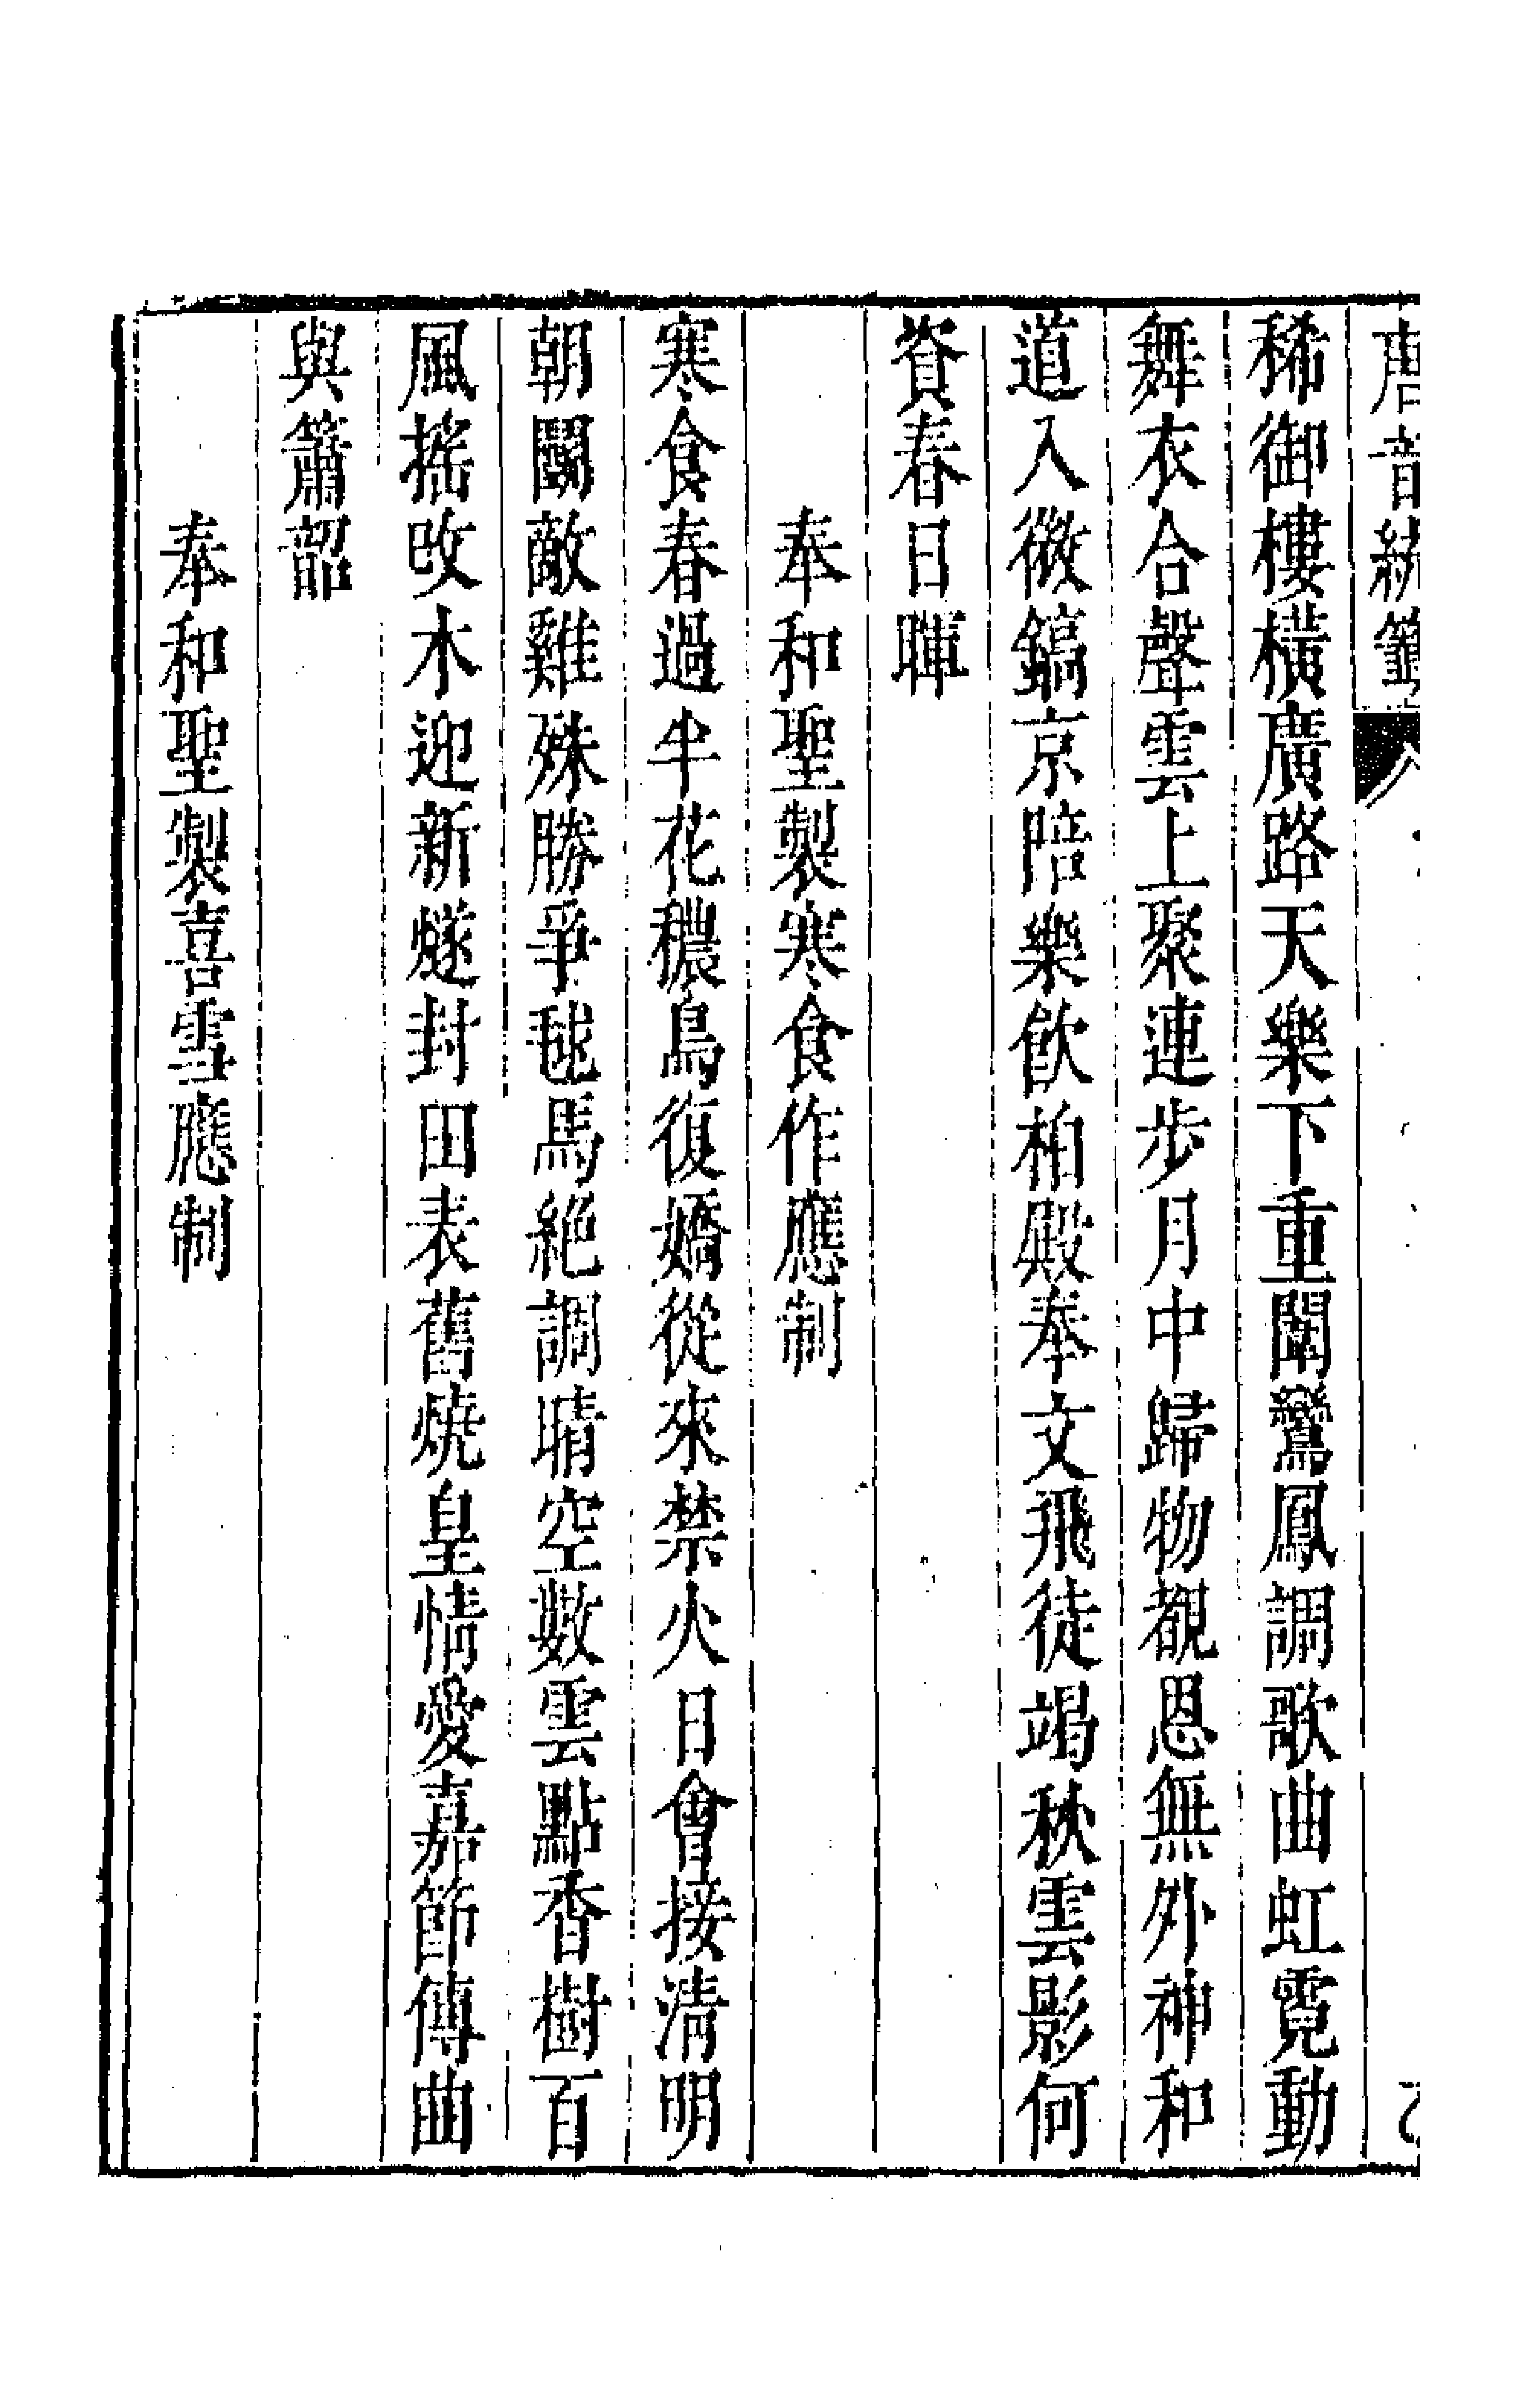 唐音統籤
稀御樓橫廣路天樂下重闈鸞鳳調歌曲虹霓動
舞衣合聲雲上聚連步月中歸物覩恩無外神和
道入微鎬京陪樂飲柏殿奉文飛徒竭秋雲影何
資春日暉
奉和聖製寒食作應制
寒食春過半花穠鳥復嬌從來禁火日會接清明
朝鬭敵雞殊勝爭毬馬絕調晴空數雲點香樹百
風搖改木迎新燧封田表舊燒皇情愛嘉節傳曲
與簫韶
奉和聖製喜雪應制